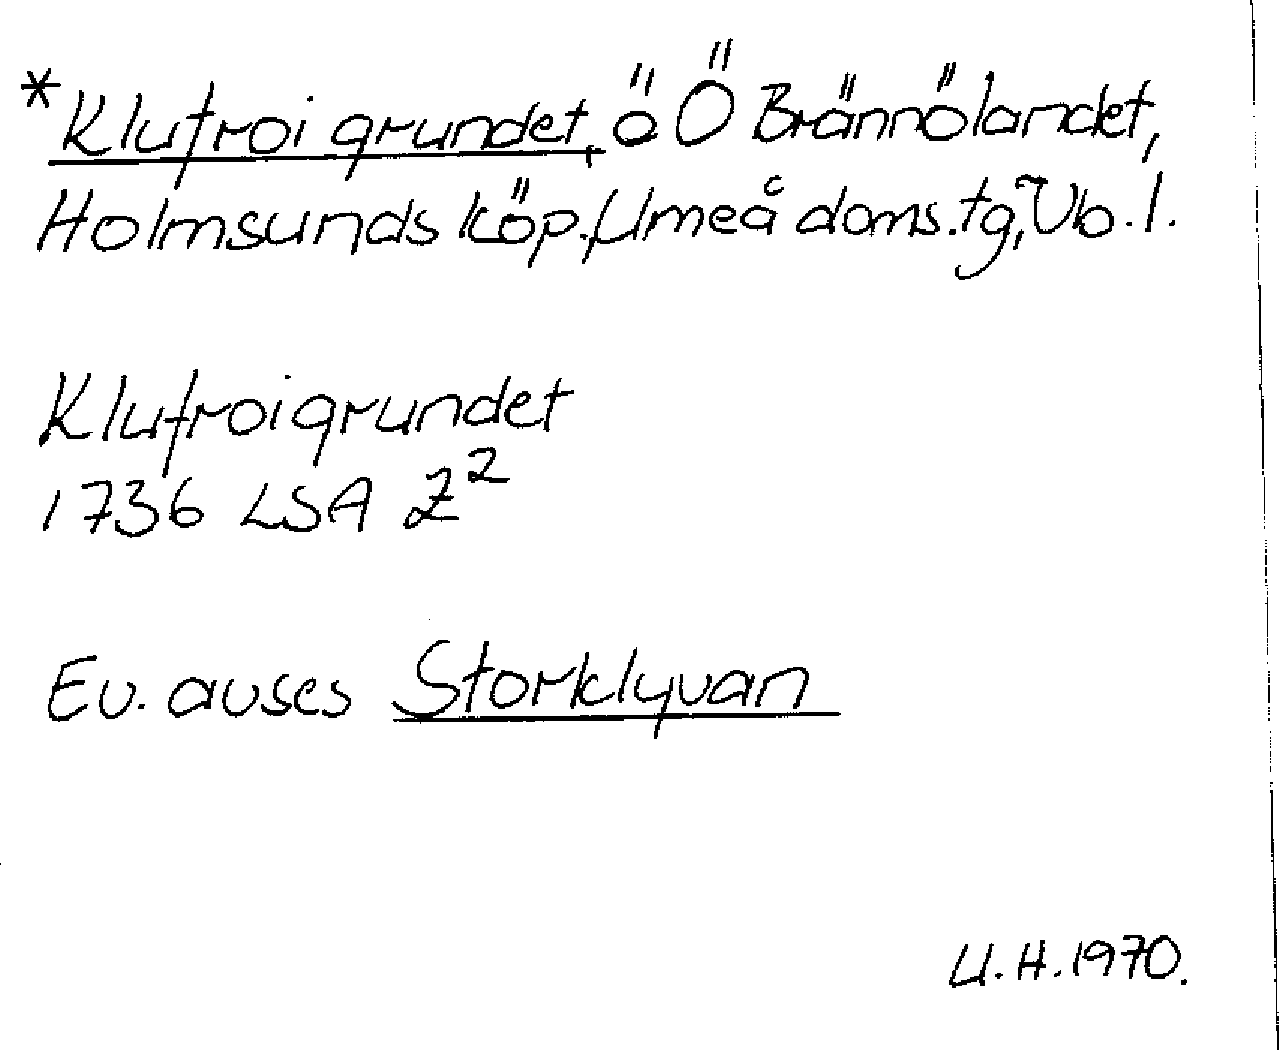 *Klufroigrundet, ö Ö Brännölandet,
Holmsunds köp., Umeå doms.tg, Vb. l.
Klufroigrundet
1736 LSA Z²
Ev. avses Storklyvan
U.H. 1970.